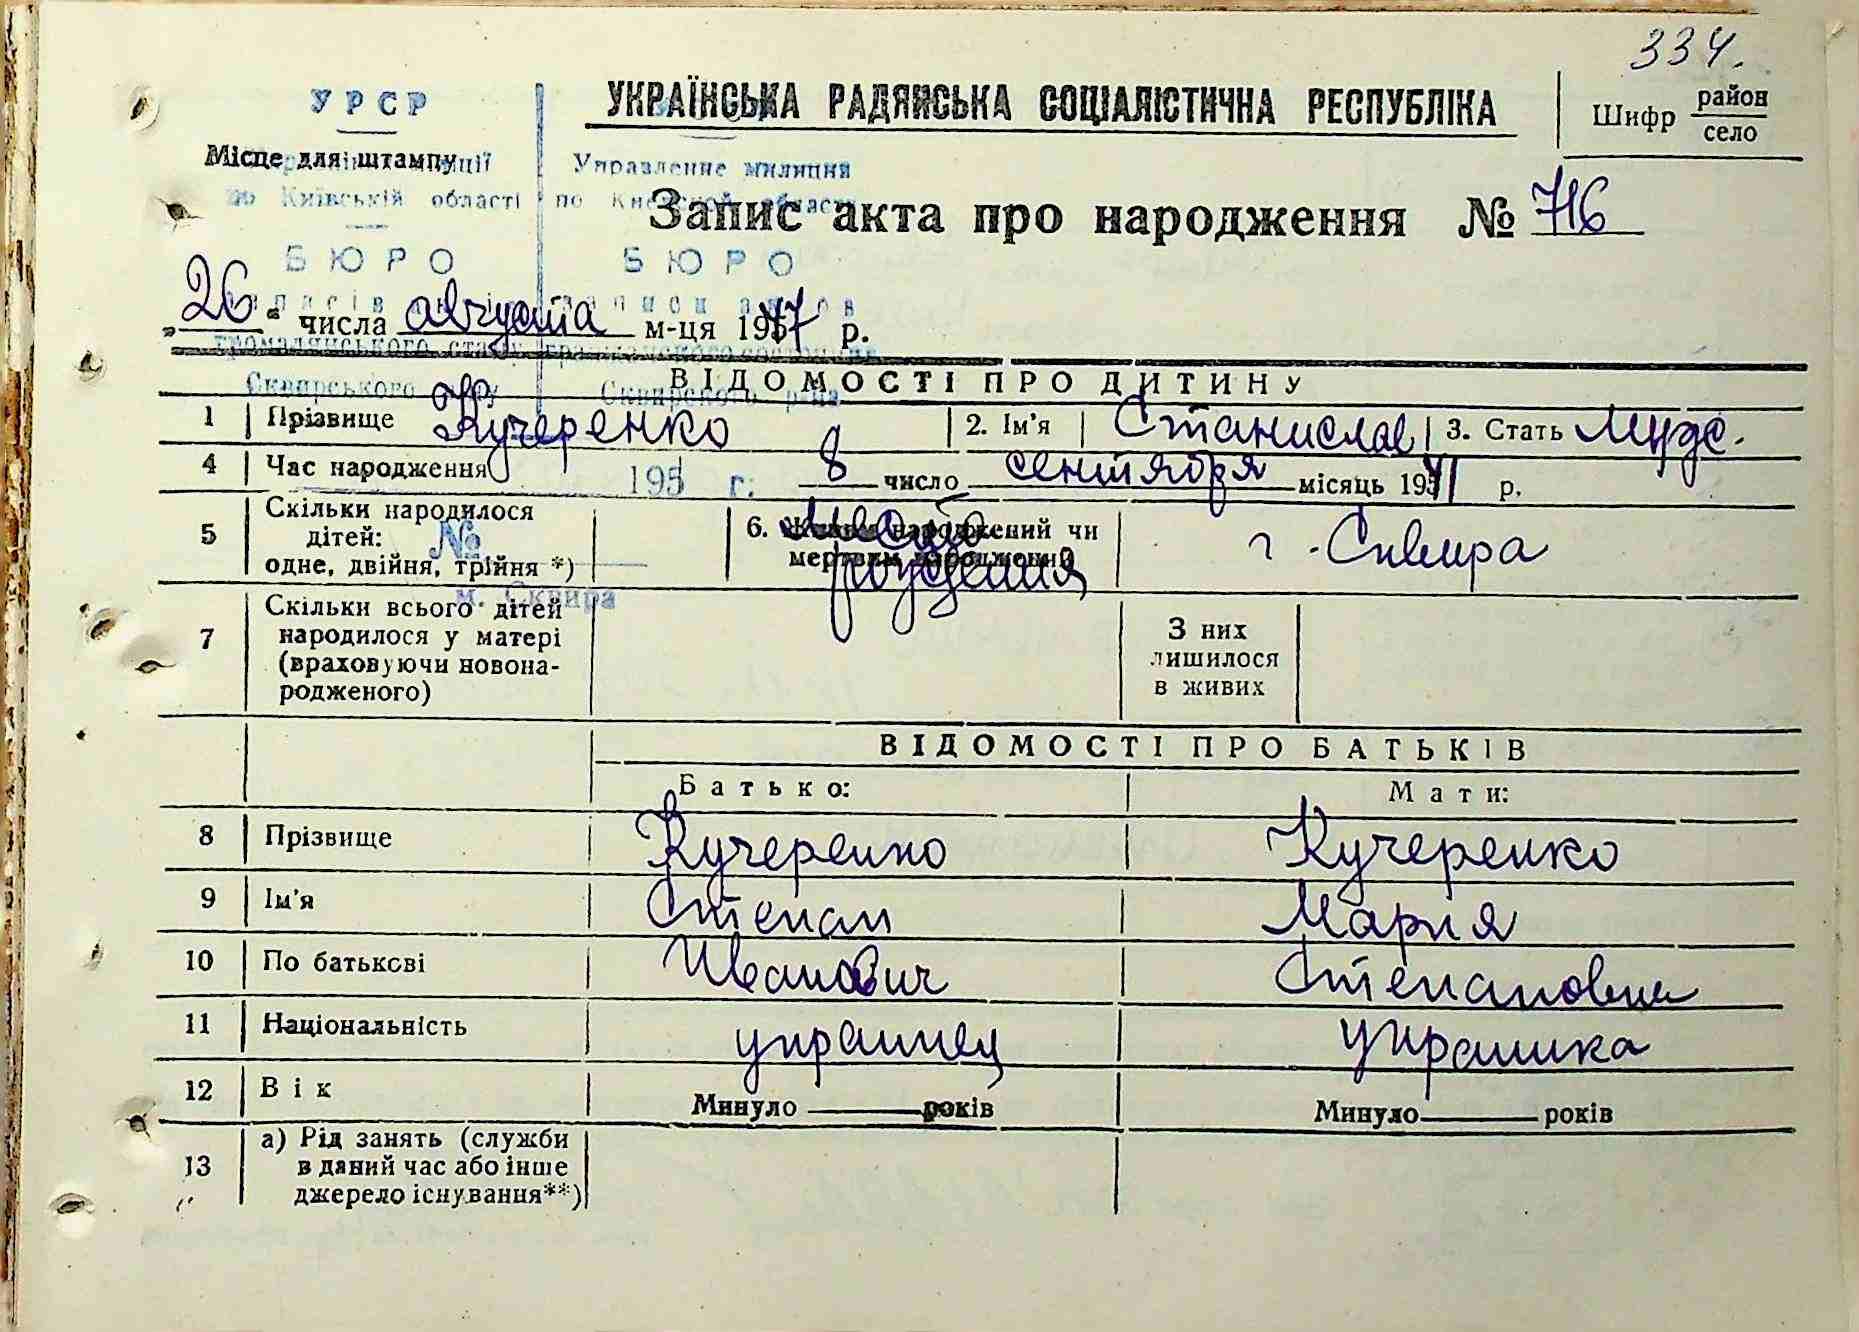 334.
УРСР
УКРАЇНСЬКА РАДЯНСЬКА СОЦІАЛІСТИЧНА РЕСПУБЛІКА
Шифр район
село
Місце для штампу
Управление милиции
по Київській області по Киевской области
Запис акта про народження № 716
БЮРО БЮРО
„26“ числа августа м-ця 1957 р.
громадянського стану гражданского состояния
Сквирського Сквирского р-на
ВІДОМОСТІ ПРО ДИТИНУ
1 Прізвище Кучеренко 2. Ім'я Станислав 3. Стать Мужс.
4 Час народження 195 г. 8 число сентября місяць 19 р.
5 Скільки народилося дітей: одне, двійня, трійня *)
№
м. Сквира
6. Живим народжений чи мертвим народжений
место рождения
г. Сквира
7 Скільки всього дітей народилося у матері (враховуючи новонародженого)
З них лишилося в живих
ВІДОМОСТІ ПРО БАТЬКІВ
Батько: Мати:
8 Прізвище Кучеренко Кучеренко
9 Ім'я Степан Мария
10 По батькові Иванович Степановна
11 Національність украинец украинка
12 Вік Минуло років Минуло років
13 а) Рід занять (служби в даний час або інше джерело існування**)